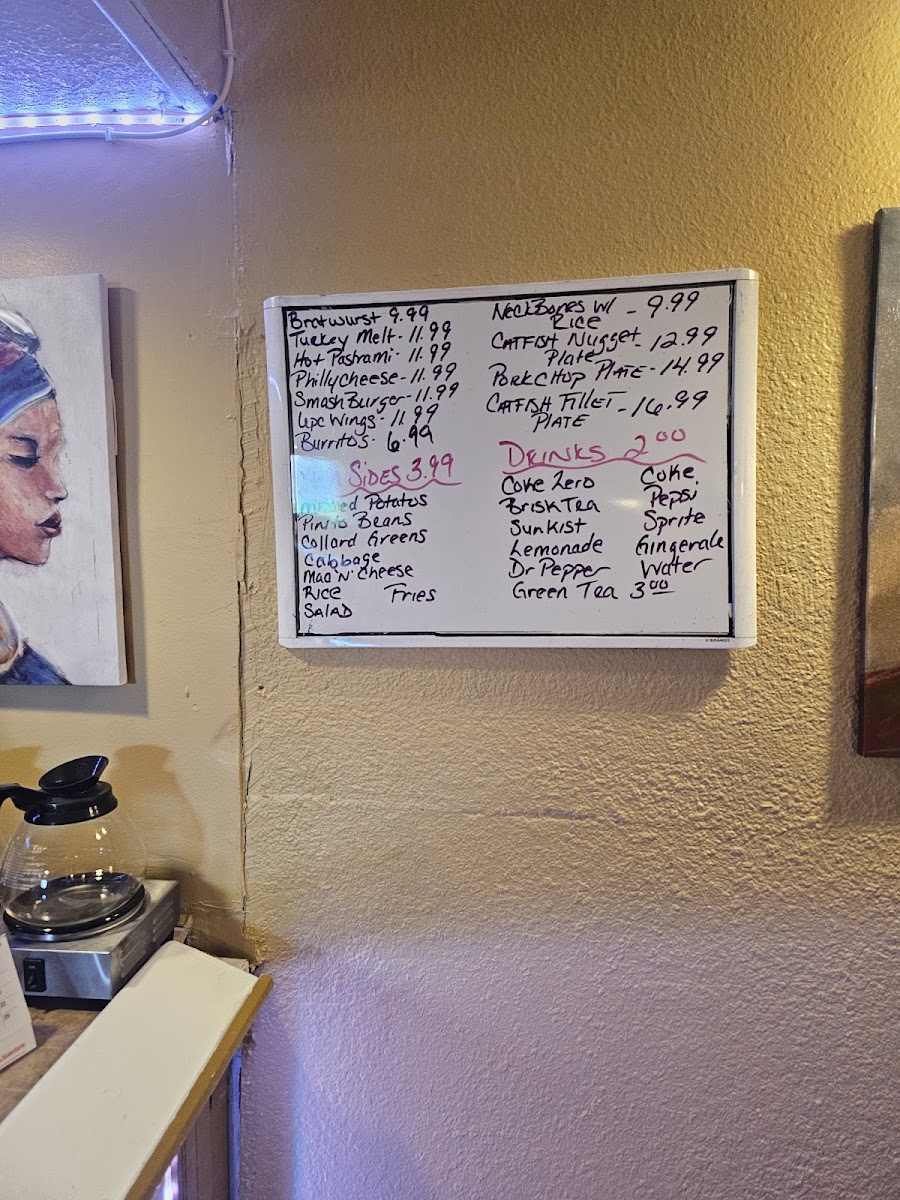 Bratwurst 9.99
Turkey Melt - 11.99
Hot Pastrami - 11.99
Phillycheese - 11.99
SmashBurger - 11.99
6pc Wings - 11.99
Burritos - 6.99
SIDES 3.99
Potatos
Pinto Beans
Collard Greens
Cabbage
Mac 'N' Cheese
RICE
Fries
SALAD
NECKBONES W/ - 9.99
RICE
CATFISH NUGGET - 12.99
Plate
PORKCHOP PLATE - 14.99
CATFISH FILLET - 16.99
PLATE
DRINKS 2.00
Coke Zero
Brisk Tea
Sunkist
Lemonade
Dr Pepper
Green Tea 3.00
Coke
Pepsi
Sprite
Gingerale
Water
U BRANDS